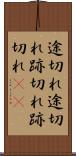 途切れ途切
れ跡切れ跡
切れ((